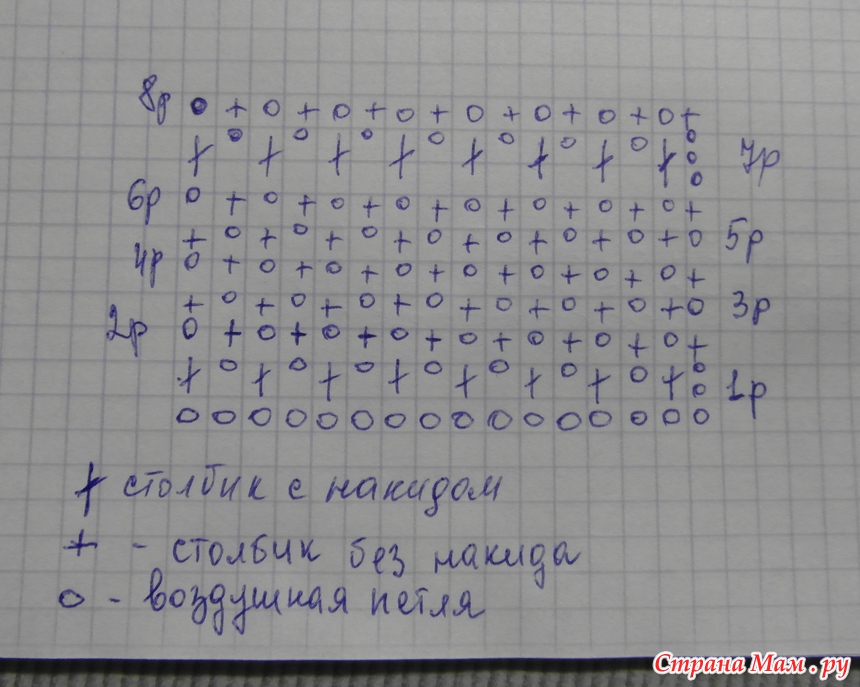 8р
7р
6р
5р
4р
3р
2р
1р
столбик с накидом
+ - столбик без накида
о - воздушная петля
Страна Мам.ру